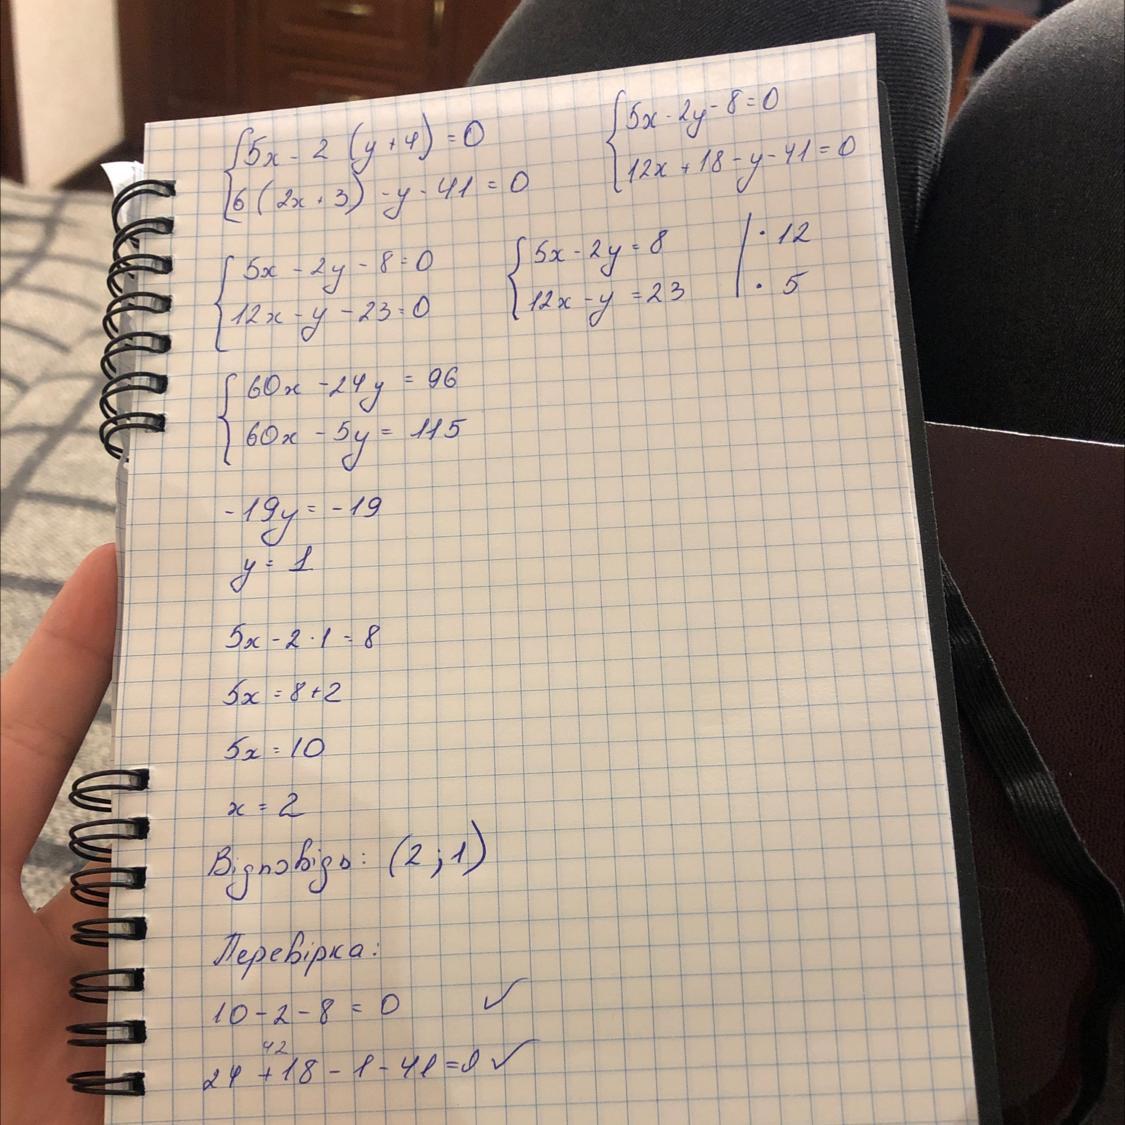 {5x - 2 (y+4) = 0
{6 (2x + 3) - y - 41 = 0
{5x - 2y - 8 = 0
{12x + 18 - y - 41 = 0
{5x - 2y - 8 = 0
{12x - y - 23 = 0
{5x - 2y = 8 | · 12
{12x - y = 23 | · 5
{60x - 24y = 96
{60x - 5y = 115
-19y = -19
y = 1
5x - 2 · 1 = 8
5x = 8+2
5x = 10
x = 2
Відповідь: (2 ; 1)
Перевірка:
10 - 2 - 8 = 0 ✓
42
24 + 18 - 1 - 41 = 0 ✓